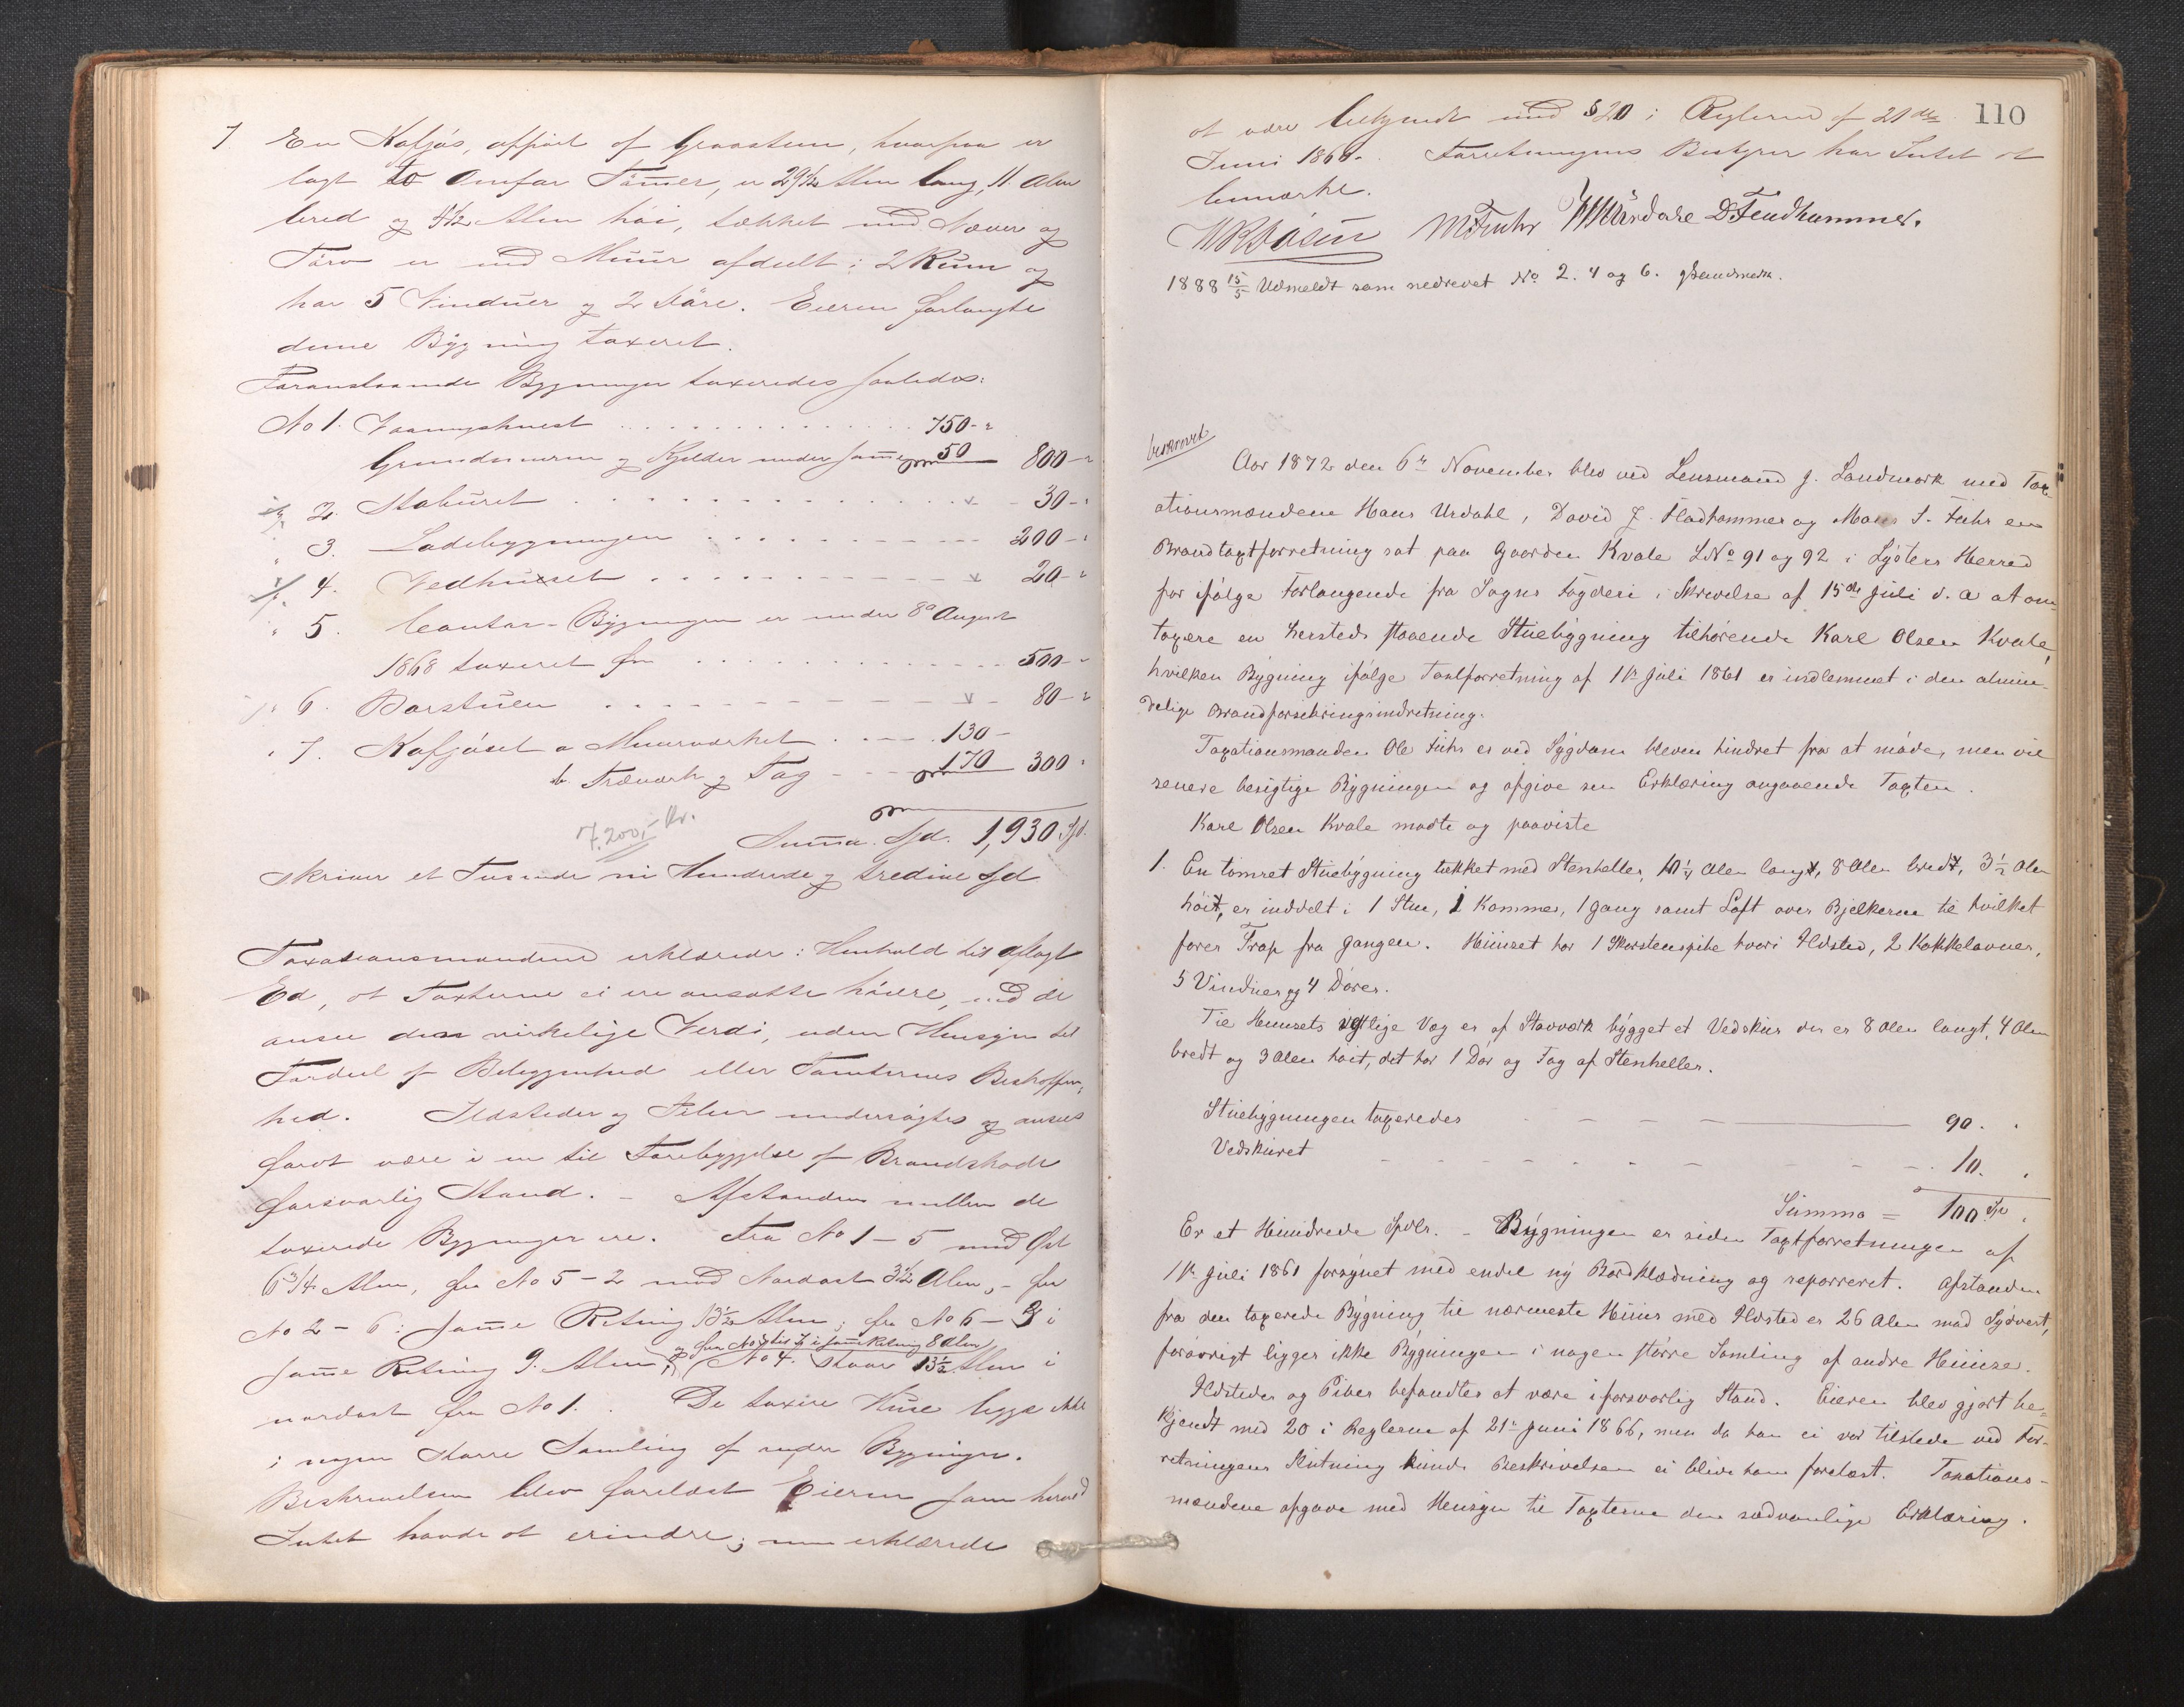 7 En Kofjós, opført af Graasteen, hvorpaa er
lagt to Omfar Tømer, er 29½ Alen lang, 11 Alen
bred og 4½ Alen høi, tækket med Næver og
Törv er med Muur afdeelt i 2 Rum og
har 5 Vinduer og 2 Döre. Eieren forlangte
denne Bygning taxeret.
Foranstaaende Bygninger taxeredes saaledes:
No 1. Vaaningshuset 750 -
Grundmuren og Kjelder under samme 50 800 -
2. Staburet 30 -
3. Ladebygningen 200 -
4. Vedhuset 20 -
5. Contor-Bygningen er under 8de August
1868 taxeret for 500 -
6. Borstuen 80 -
7. Kofjóset a Muurværket 130 -
b. Træværk og Tag 170 300
7,200,- Kr.
Suma Spd. 1,930 Spd.
skriver et Tusinde ni Hundrede og tredive Spd
Taxationsmændene erklærede i Henhold til aflagt
Ed, at Taxterne ei ere ansatte høiere, end de
ansee den virkelige Verdi, uden Hensyn til
Fordeel af Beliggenhed eller Tomternes Beskaffen-
hed. Ildsteder og Piber undersøgtes og ansees
forøvt være i en til Forebyggelse af Brandskade
forsvarlig Stand. - Afstanden mellem de
taxerede Bygninger ere. Fra No 1 - 5 mod Øst
6¾ Alen, fra No 5 - 2 mod Nordost 3½ Alen, - fra
No 2 - 6 i same Retning 13½ Alen, fra No 6 - 3 i
og fra No 3 til 7 i same Retning 8 Alen
same Retning 9. Alen, No 4. staar 13½ Alen i
nordost fra No 1. De taxere Huse ligge ikke
i nogen større Samling af andre Bygninger.
Beskrivelsen blev forelæst Eieren som herved
Intet havde at erindre; men erklærede
110
at være bekjendt med §20 i Reglerne af 21de
Juni 1866. Forretningens Bestyrer har Intet at
bemærke.
M Fuhr H Ursdahl D Fladhammer.
1888 15/5 Udmeldt som nedrevet No 2. 4 og 6. gLandmark.
Aar 1872 den 6te November blev ved Lensmand J. Landmark med Tax-
ationsmændene Hans Urdahl, David J. Fladhammer og Mons T. Fuhr en
Brandtaxtforretning sat paa Gaarden Kvale LNo 91 og 92 i Lysters Herred
for ifølge Forlangende fra Sogns Fogderi i Skrivelse af 15de Juli d. a at om-
taxere en hersteds staaende Stuebygning tilhørende Karl Olsen Kvale,
hvilken Bygning ifølge Taxtforretning af 1ste Juli 1861 er indlemmet i den almin-
delige Brandforsikringsindretning.
Taxationsmanden Ole Fuhr er ved Sygdom bleven hindret fra at møde, men vil
senere besigtige Bygningen og afgive sin Erklæring angaaende Taxten.
Karl Olsen Kvale mødte og paaviste
1. En tømret Stuebygning tækket med Stenheller, 10¼ Alen langt, 8 Alen bredt, 3½ Alen
høit, er inddelt i 1 Stue, 1 Kammer, 1 Gang samt Loft over Bjelkerne til hvilket
fører Trap fra Gangen. Huuset har 1 Skorstenspibe hvori Ildsted, 2 Kakkelovner,
5 Vinduer og 4 Dører.
Til Huusets vestlige Væg er af Stavværk bygget et Vedskur der er 8 Alen langt, 4 Alen
bredt og 3 Alen høit, det har 1 Dør og Tag af Stenheller.
Stuebygningen taxeredes 90.
Vedskuret 10.
Summa = 100 Spd
Er et Hundrede Spdlr. - Bygningen er siden Taxtforretningen af
1ste Juli 1861 forsynet med endel ny Bordklædning og reporreret. Afstanden
fra den taxerede Bygning til nærmeste Huus med Ildsted er 26 Alen mod Sydvest,
forøvrigt ligger ikke Bygningen i nogen større Samling af andre Huuse.
Ildsteder og Piber befandtes at være i forsvarlig Stand. Eieren blev gjort be-
kjendt med 20 i Reglerne af 21de Juni 1866, men da han ei var tilstede ved For-
retningens Slutning kunde Beskrivelsen ei blive ham forelæst. Taxations-
mændene afgave med Hensyn til Taxterne den sædvanlige Erklæring.